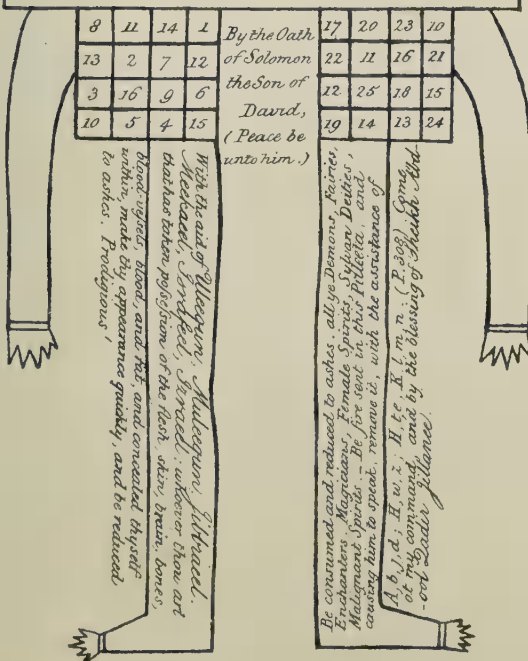 8 11 14 1
13 2 7 12
3 16 9 6
10 5 4 15
By the Oath
of Solomon
the Son of
David,
(Peace be
unto him.)
17 20 23 10
22 11 16 21
12 25 18 15
19 14 13 24
With the aid of
Meekaeel, Israfeel, Izraeel, whoever thou art
that has taken possession of the flesh, skin, brain, bones,
blood-vessels, blood, and fat, and concealed thyself
within, make thy appearance quickly, and be reduced
to ashes. Prodigious,
Be consumed and reduced to ashes, all ye Demons, Fairies,
Enchanters, Magicians, Female Spirits, Sylvan Deities,
Malignant Spirits. — Be fire sent in this Pulleeta, and
causing him to speak, remove it, with the assistance of
A, b, j, d; H, w, z; H, t, e; K, l, m, n; (P. 303) Come
at my command, and by the blessing of Sheikh Abd-
-ool Qadir Jillanee.